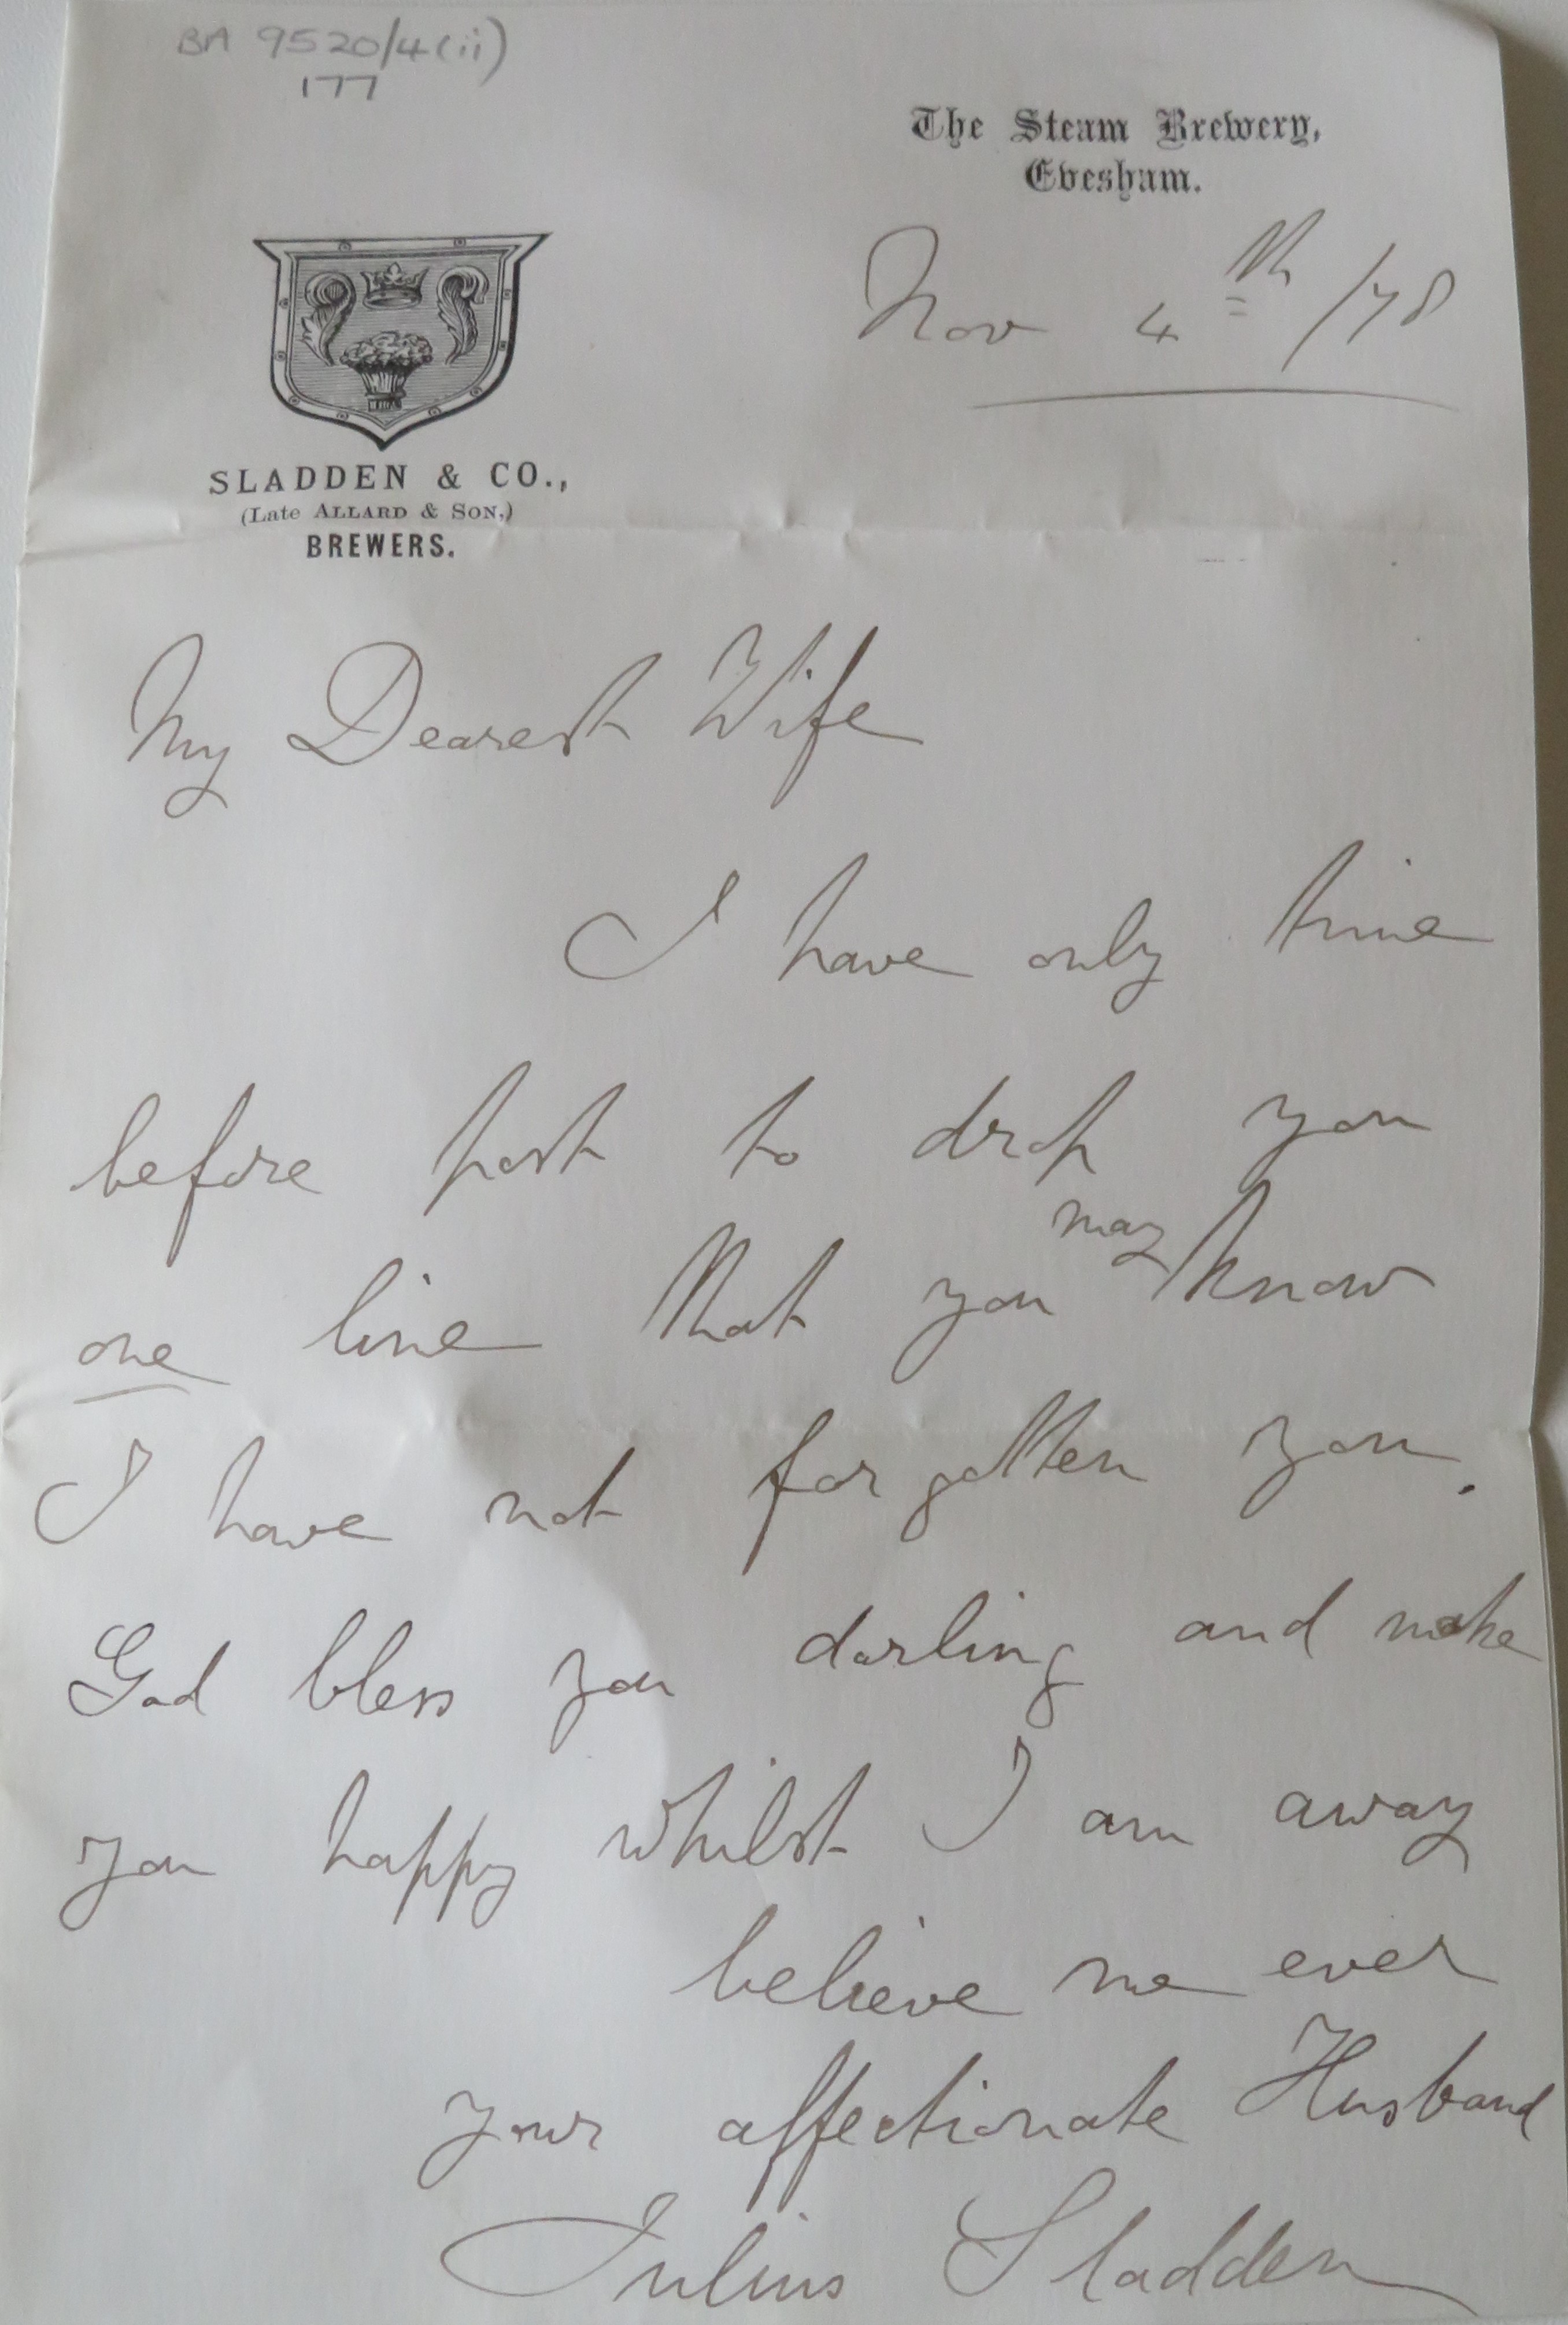 BA 9520/4(ii)
177
The Steam Brewery,
Evesham.
Nov 4th /78
SLADDEN & CO.,
(Late ALLARD & SON,)
BREWERS.
My Dearest Wife
I have only time
before post to drop you
one line that you may know
I have not forgotten you.
God bless you darling and make
you happy whilst I am away
believe me ever
your affectionate Husband
Julius Sladden